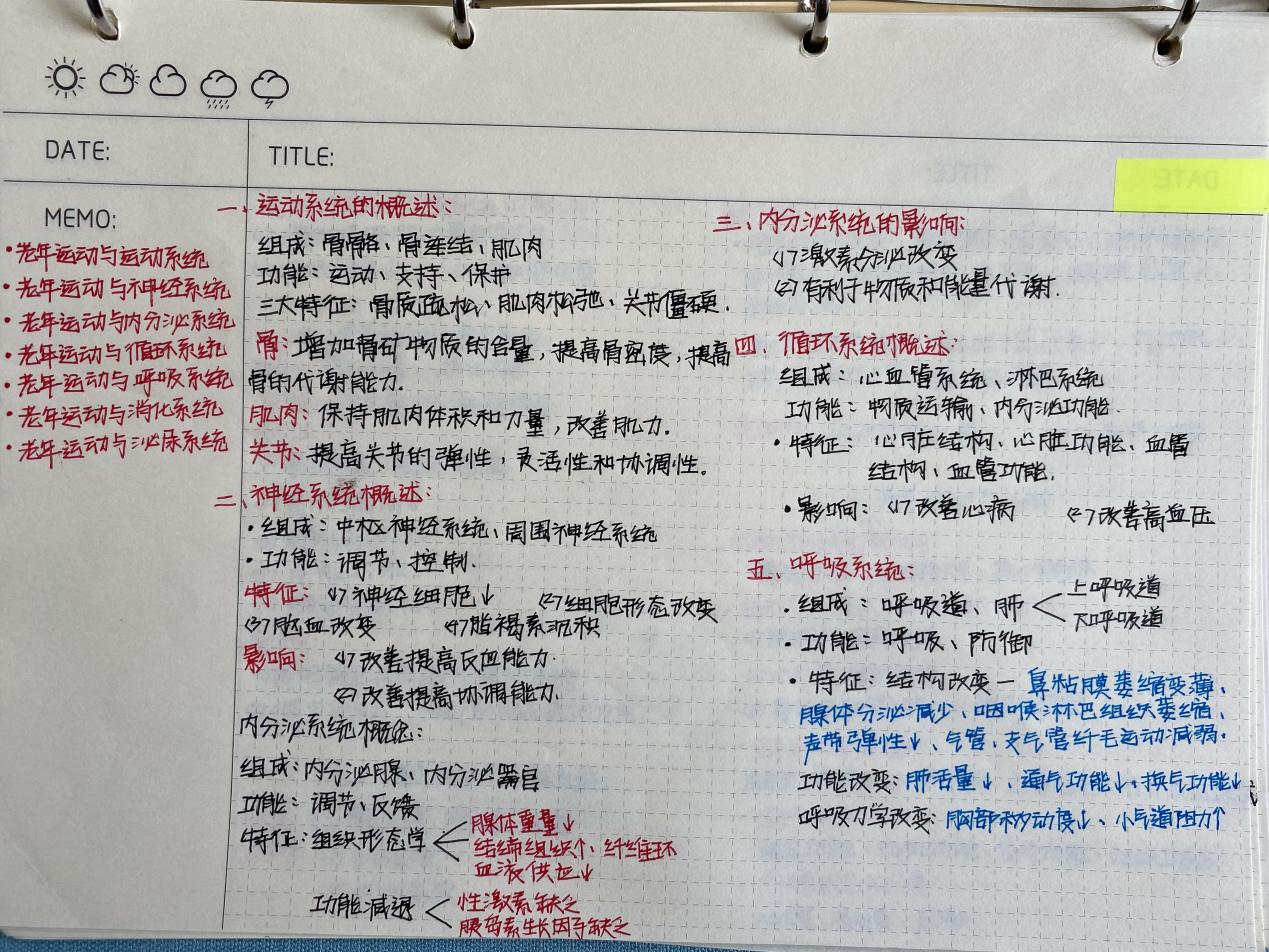 DATE:
TITLE:
MEMO:
•老年运动与运动系统
•老年运动与神经系统
•老年运动与内分泌系统
•老年运动与循环系统
•老年运动与呼吸系统
•老年运动与消化系统
•老年运动与泌尿系统
一、运动系统的概述:
组成:骨骼、骨连结、肌肉
功能:运动、支持、保护
三大特征:骨质疏松、肌肉松弛、关节僵硬.
骨:增加骨矿物质的含量,提高骨密度,提高
骨的代谢能力.
肌肉:保持肌肉体积和力量,改善肌力.
关节:提高关节的弹性,灵活性和协调性.
二、神经系统概述:
•组成:中枢神经系统、周围神经系统
•功能:调节、控制.
特征:<1>神经细胞↓ <2>细胞形态改变
<3>脑血改变 <4>脂褐素沉积
影响:<1>改善提高反应能力.
<2>改善提高协调能力.
内分泌系统概念:
组成:内分泌腺、内分泌器官
功能:调节、反馈
特征:组织形态学
腺体重量↓
结缔组织↑、纤维环
血液供应↓
功能减退
性激素缺乏
胰岛素生长因子缺乏
三、内分泌系统的影响:
<1>激素分泌改变
<2>有利于物质和能量代谢.
四、循环系统概述:
组成:心血管系统、淋巴系统
功能:物质运输、内分泌功能.
•特征:心脏结构、心脏功能、血管
结构、血管功能.
•影响:<1>改善心病 <2>改善高血压
五、呼吸系统:
•组成:呼吸道、肺
上呼吸道
下呼吸道
•功能:呼吸、防御
•特征:结构改变—鼻粘膜萎缩变薄、
腺体分泌减少、咽喉淋巴组织萎缩、
声带弹性↓、气管、支气管纤毛运动减弱.
功能改变:肺活量↓、通气功能↓、换气功能↓
呼吸力学改变:胸部移动度↓、小气道阻力↑